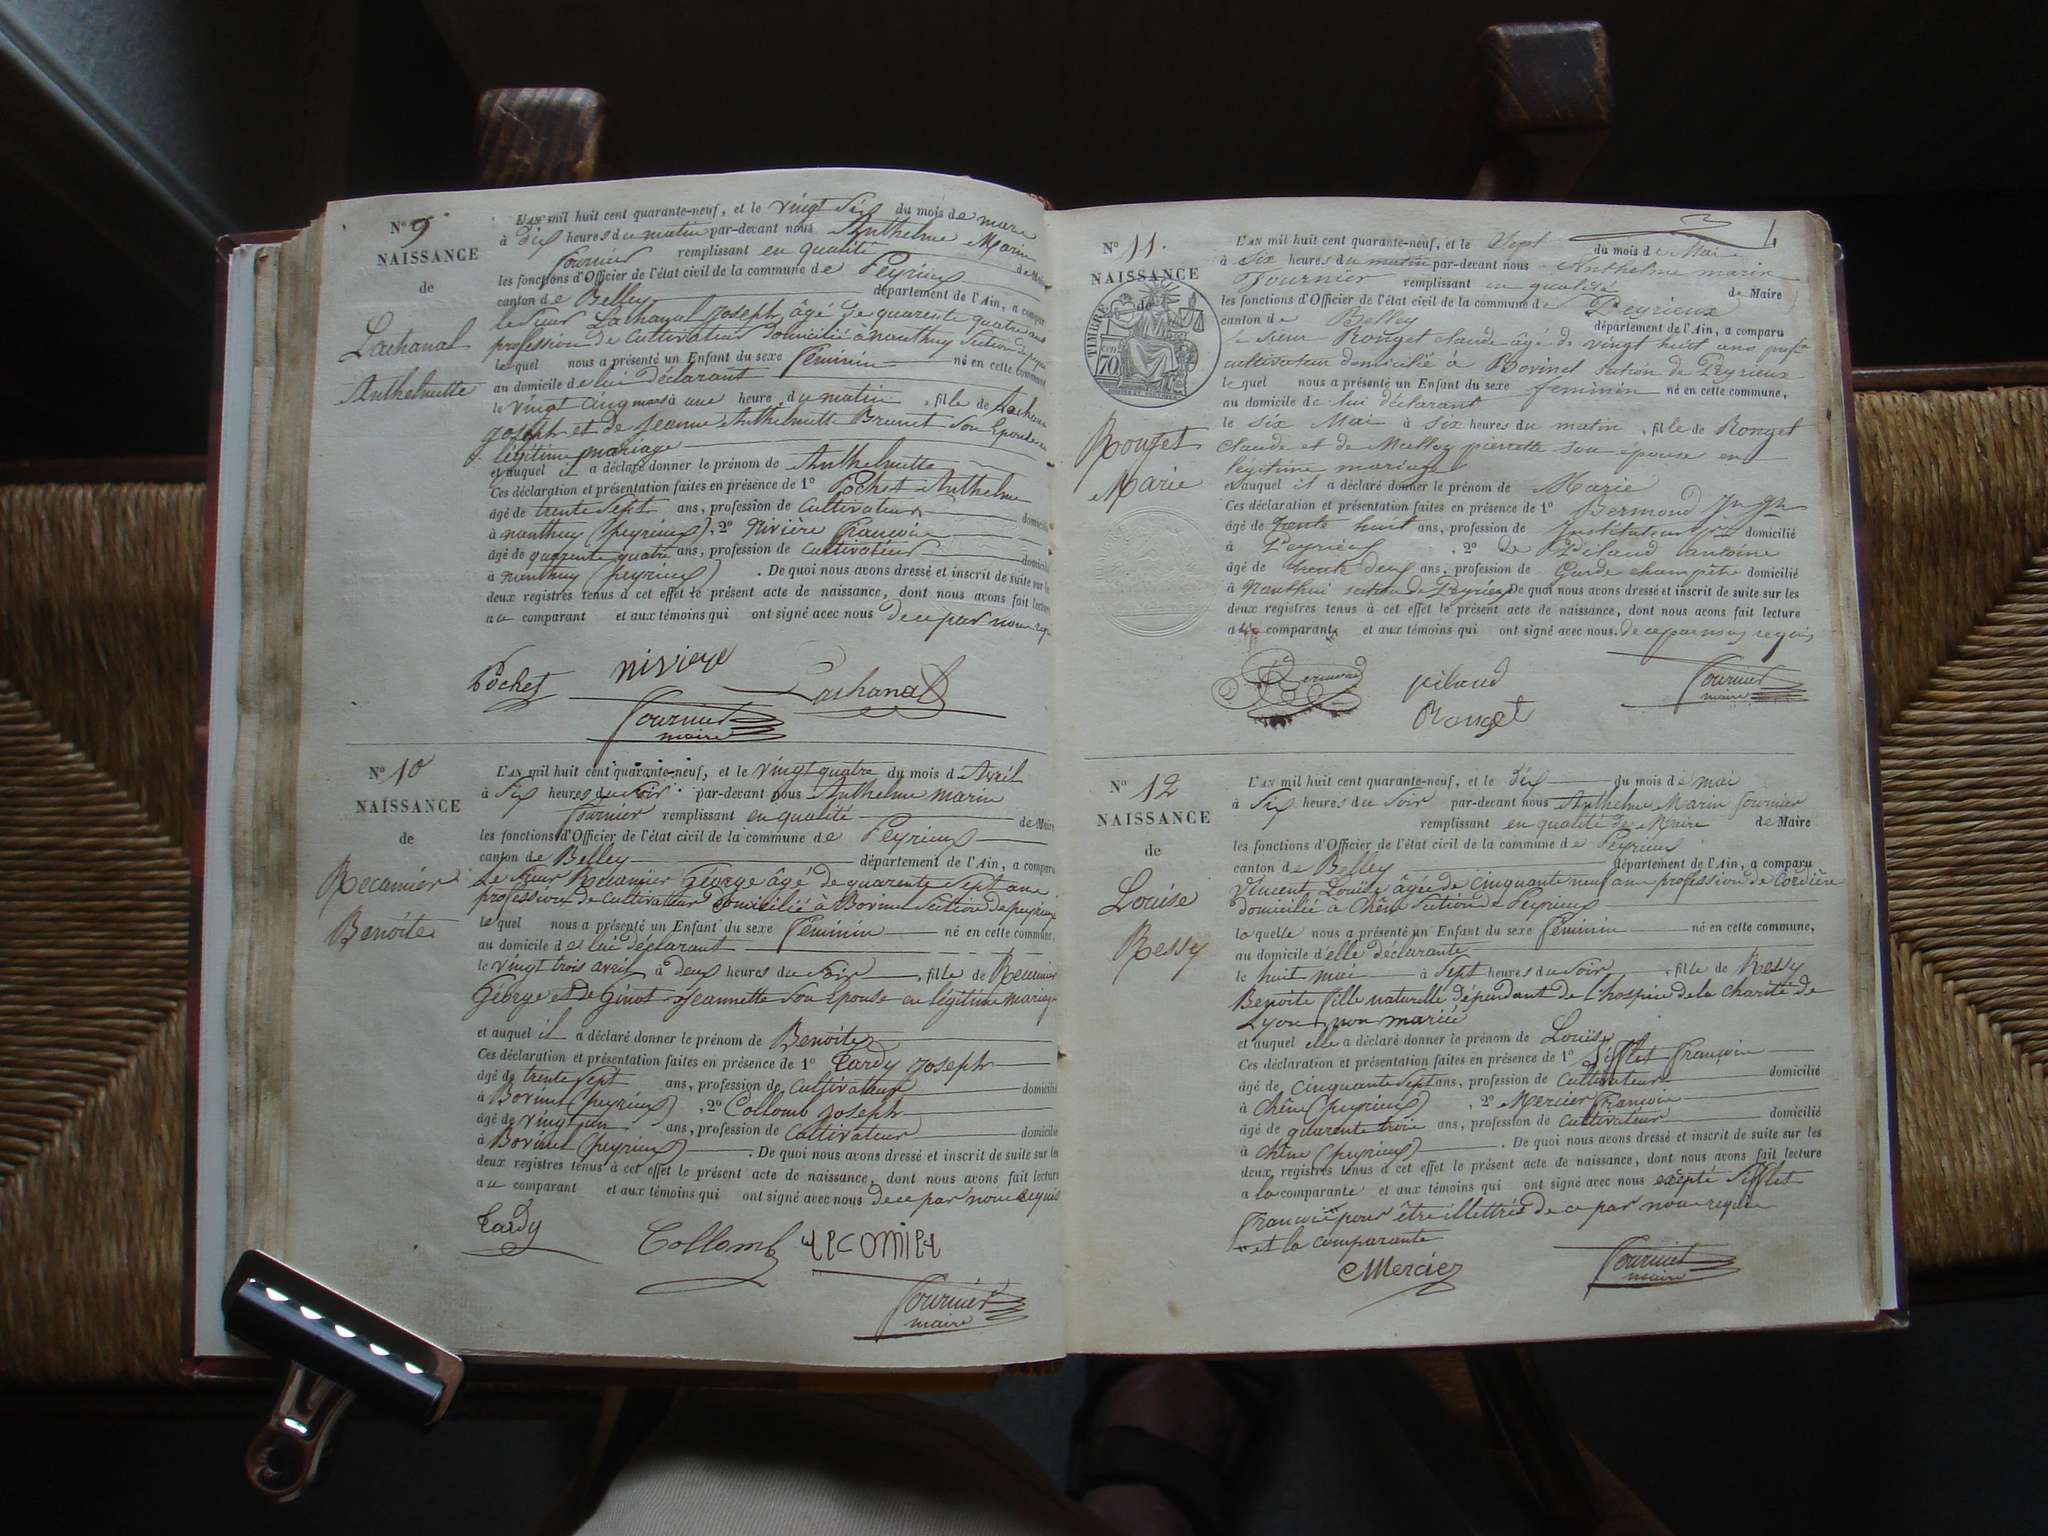 N° 9
NAISSANCE
de
Lachanal
Anthelmette
L'AN mil huit cent quarante-neuf, et le vingt six du mois de mars
à dix heures du matin par-devant nous Anthelme Marin
fournier remplissant en qualité de Maire
les fonctions d'Officier de l'état civil de la commune de Peyrieux
canton de Belley département de l'Ain, a compar
le sieur Lachanal joseph, âgé de quarente quatre ans
profession de Cultivateur domicilié à nanthuy Section de
le quel nous a présenté un Enfant du sexe féminin né en cette commune
au domicile de lui déclarant
le vingt cinq mars à une heure du matin, fille de Lachan
joseph et de Jeanne Anthelmette Brunet son Epouse
légitime mariage
et auquel il a déclaré donner le prénom de Anthelmette
Ces déclaration et présentation faites en présence de 1° Pochet Anthelme
âgé de trente sept ans, profession de Cultivateur domicilié
à nanthuy (peyrieux), 2° Nivière françois
âgé de quarente quatre ans, profession de Cultivateur domicilié
à nanthuy (peyrieux). De quoi nous avons dressé et inscrit de suite sur les
deux registres tenus à cet effet le présent acte de naissance, dont nous avons fait lecture
au comparant et aux témoins qui ont signé avec nous de ce par nous requis
Pochet niviere Lachanal
fournier
maire
N° 10
NAISSANCE
de
Recamier
Benoite
L'AN mil huit cent quarante-neuf, et le vingt quatre du mois d'Avril
à Six heures du Soir par-devant nous Anthelme marin
fournier remplissant en qualité de Maire
les fonctions d'Officier de l'état civil de la commune de Peyrieux
canton de Belley département de l'Ain, a comparu
Le sieur Recamier George âgé de quarente Sept ans
profession de cultivateur domicilié à Bovinel Section de peyrieux
le quel nous a présenté un Enfant du sexe féminin né en cette commune,
au domicile de lui déclarant
le vingt trois avril à deux heures du Soir, fille de Recamier
George et de Ginot Jeannette Son Epouse en légitime mariage
et auquel il a déclaré donner le prénom de Benoite
Ces déclaration et présentation faites en présence de 1° Tardy joseph
âgé de trente Sept ans, profession de Cultivateur domicilié
à Bovinel (peyrieux), 2° Collomb joseph
âgé de vingt un ans, profession de Cultivateur domicilié
à Bovinel (peyrieux). De quoi nous avons dressé et inscrit de suite sur les
deux registres tenus à cet effet le présent acte de naissance, dont nous avons fait lecture
au comparant et aux témoins qui ont signé avec nous de ce par nous requis
Tardy Collomb recomier
fournier
maire
N° 11.
NAISSANCE
de
TIMBRE
70
Rouget
Marie
L'AN mil huit cent quarante-neuf, et le Sept du mois de Mai
à six heures du matin par-devant nous Anthelme marin
Fournier remplissant en qualité de Maire
les fonctions d'Officier de l'état civil de la commune de Peyrieux
canton de Belley département de l'Ain, a comparu
le sieur Rouget claude âgé de vingt huit ans profon
cultivateur domicilié à Bovinel section de Peyrieux
le quel nous a présenté un Enfant du sexe feminin né en cette commune,
au domicile de lui déclarant
le six Mai à six heures du matin, fille de Rouget
Claude et de pierrette son épouse en
légitime mariage
et auquel il a déclaré donner le prénom de Marie
Ces déclaration et présentation faites en présence de 1° Bermond
âgé de trente huit ans, profession de Instituteur domicilié
à Peyrieux, 2° de Pilaud antoine
âgé de trente deux ans, profession de Garde champêtre domicilié
à Nanthui section de Peyrieux De quoi nous avons dressé et inscrit de suite sur les
deux registres tenus à cet effet le présent acte de naissance, dont nous avons fait lecture
au comparant et aux témoins qui ont signé avec nous. de ce par nous requis
Bermond pilaud fournier
Rouget maire
N° 12
NAISSANCE
de
Louise
Ressy
L'AN mil huit cent quarante-neuf, et le dix du mois de mai
à Six heures du Soir par-devant nous Anthelme Marin fournier
remplissant en qualité de Maire de Maire
les fonctions d'Officier de l'état civil de la commune de Peyrieux
canton de Belley département de l'Ain, a comparu
Vincent Louise âgée de cinquante neuf ans profession de Cordière
domicilié à Chêne Section de Peyrieux
la quelle nous a présenté un Enfant du sexe féminin né en cette commune,
au domicile d'elle déclarante
le huit mai à Sept heures du Soir, fille de Ressy
Benoite fille naturelle dépendant de l'hospice de la charité de
Lyon, non mariée
et auquel elle a déclaré donner le prénom de Louise
Ces déclaration et présentation faites en présence de 1° Sifflet françois
âgé de cinquante Sept ans, profession de Cultivateur domicilié
à Chêne (peyrieux), 2° Mercier françois
âgé de quarente trois ans, profession de Cultivateur domicilié
à Chêne (peyrieux). De quoi nous avons dressé et inscrit de suite sur les
deux registres tenus à cet effet le présent acte de naissance, dont nous avons fait lecture
a la comparante et aux témoins qui ont signé avec nous excépté Sifflet
francois pour être illettrés de ce par nous requis
et la comparante
Mercier fournier
maire